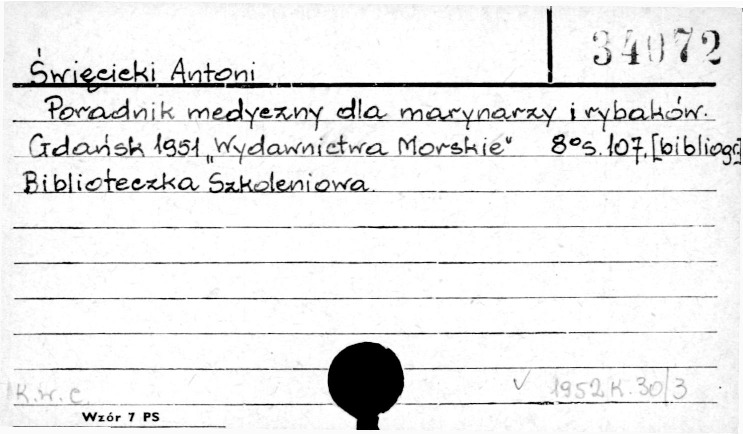 34072
Święcicki Antoni
Poradnik medyczny dla marynarzy i rybaków.
Gdańsk 1951 „Wydawnictwa Morskie" 8° s. 107, [bibliogr]
Biblioteczka Szkoleniowa.
K.w.c. √ 1952 K. 30/3
Wzór 7 PS